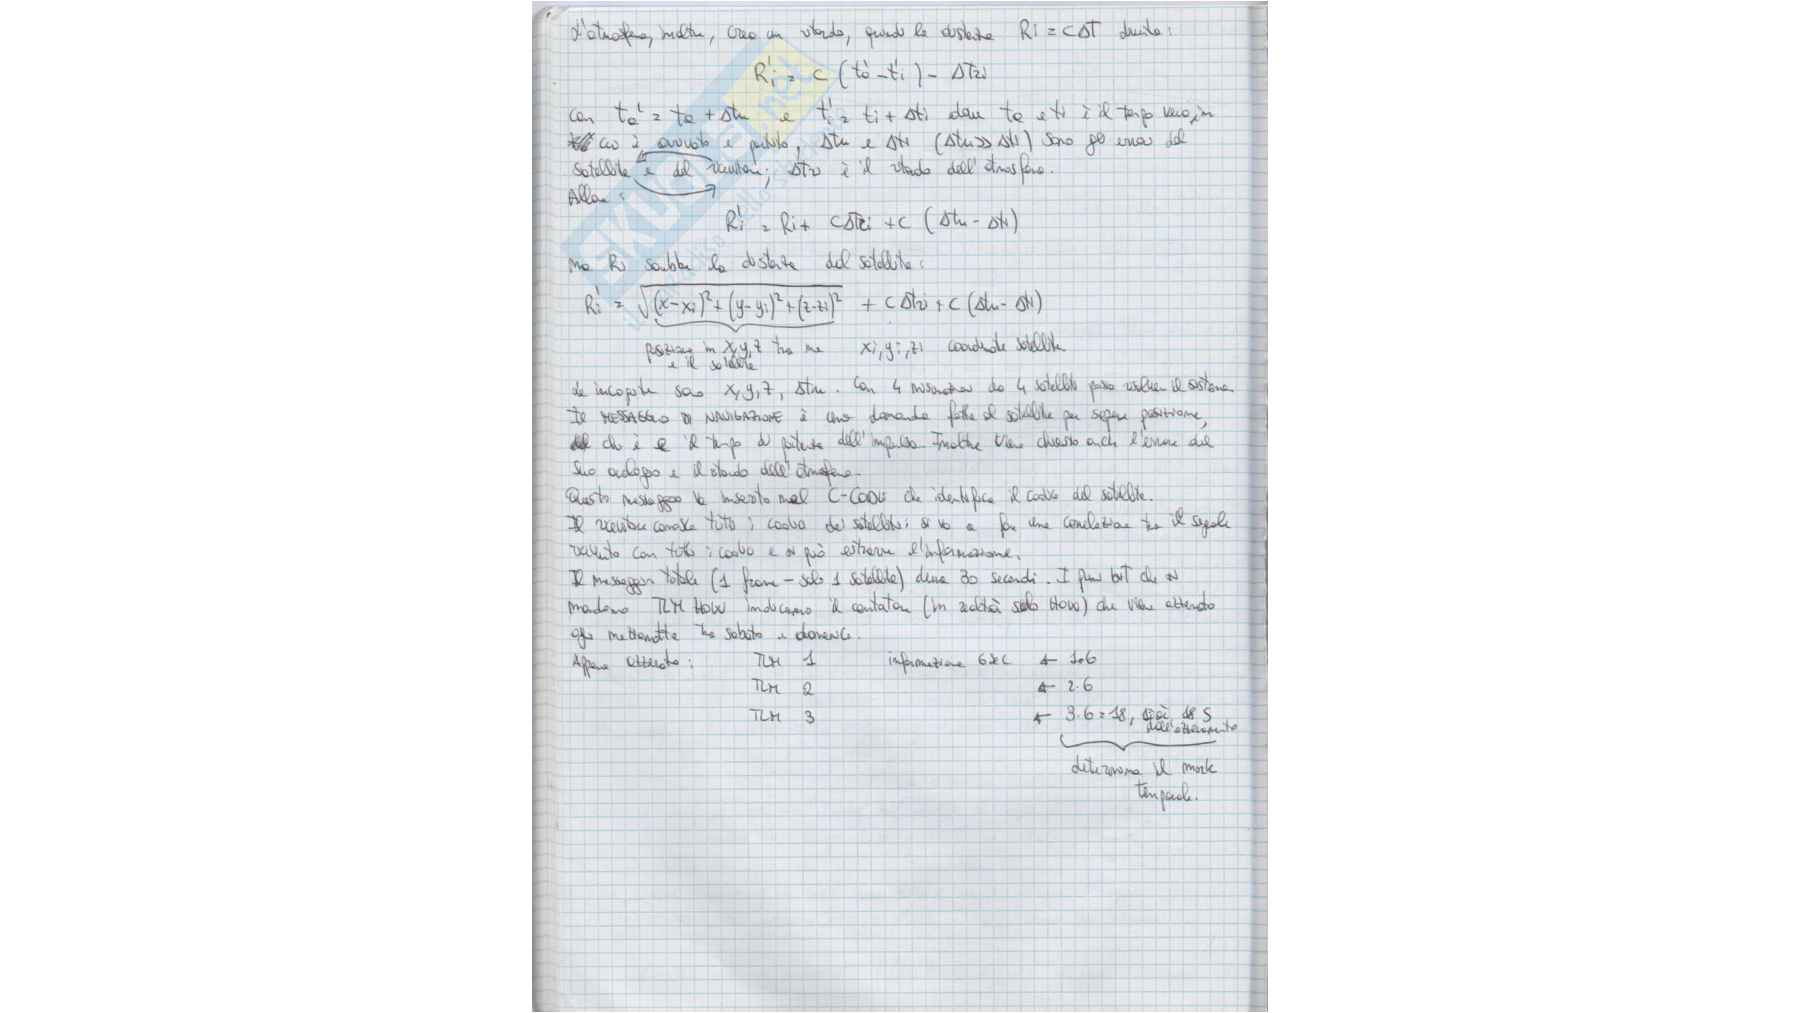 L'atmosfera, inoltre, crea un ritardo, quindi la distanza Ri = cΔT diventa:
R'i = c (t'a - t'i) - ΔTzi
con ta' = ta + Δtu e t'i = ti + Δti dove ta e ti è il tempo vero, in
cui è arrivato e partito, Δtu e Δti (Δtu >> Δti) sono gli errori del
satellite e del ricevitore; ΔTzi è il ritardo dell'atmosfera.
Allora:
R'i = Ri + cΔTzi + c (Δtu - Δti)
ma Ri sarebbe la distanza del satellite:
R'i = √(x-xi)² + (y-yi)² + (z-zi)² + cΔtzi + c (Δtu - Δti)
posizione in x,y,z tra me xi, yi, zi coordinate satellite
e il satellite
Le incognite sono x,y,z, Δtu. Con 4 misurazioni da 4 satelliti posso risolvere il sistema
Il MESSAGGIO DI NAVIGAZIONE è una domanda fatta al satellite per sapere posizione,
che è il tempo di partenza dell'impulso. Inoltre viene chiesto anche l'errore del
suo orologio e il ritardo dell'atmosfera.
Questo messaggio va inserito nel C-CODE che identifica il codice del satellite.
Il ricevitore conosce tutti i codici dei satelliti: si va a fare una correlazione tra il segnale
ricevuto con tutti i codici e si può estrarre l'informazione.
Il messaggio totale (1 frame - solo 1 satellite) dura 30 secondi. I primi bit che si
mandano TLM HOW indicano il contatore (in realtà solo HOW) che viene azzerato
ogni mezzanotte tra sabato e domenica.
Appena azzerato: TLM 1 informazione 6 sec ← 1·6
TLM 2 ← 2·6
TLM 3 ← 3·6 = 18, cioè 18 s
dall'azzeramento
determina il mark
temporale.